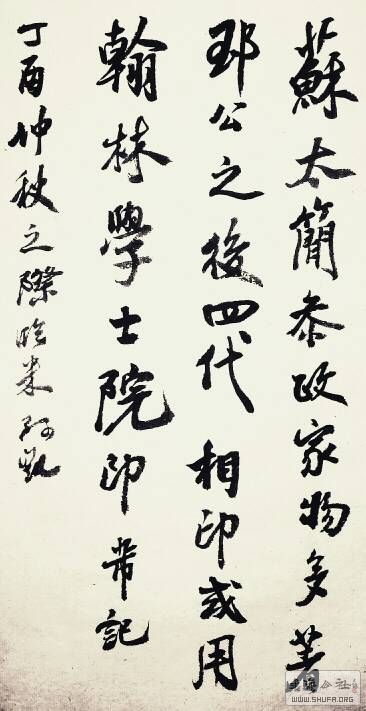 蘇太簡叅政家物多著
邳公之後四代相印或用
翰林學士院印芾記
丁酉仲秋之際臨米阿凱
WWW.SHUFA.ORG